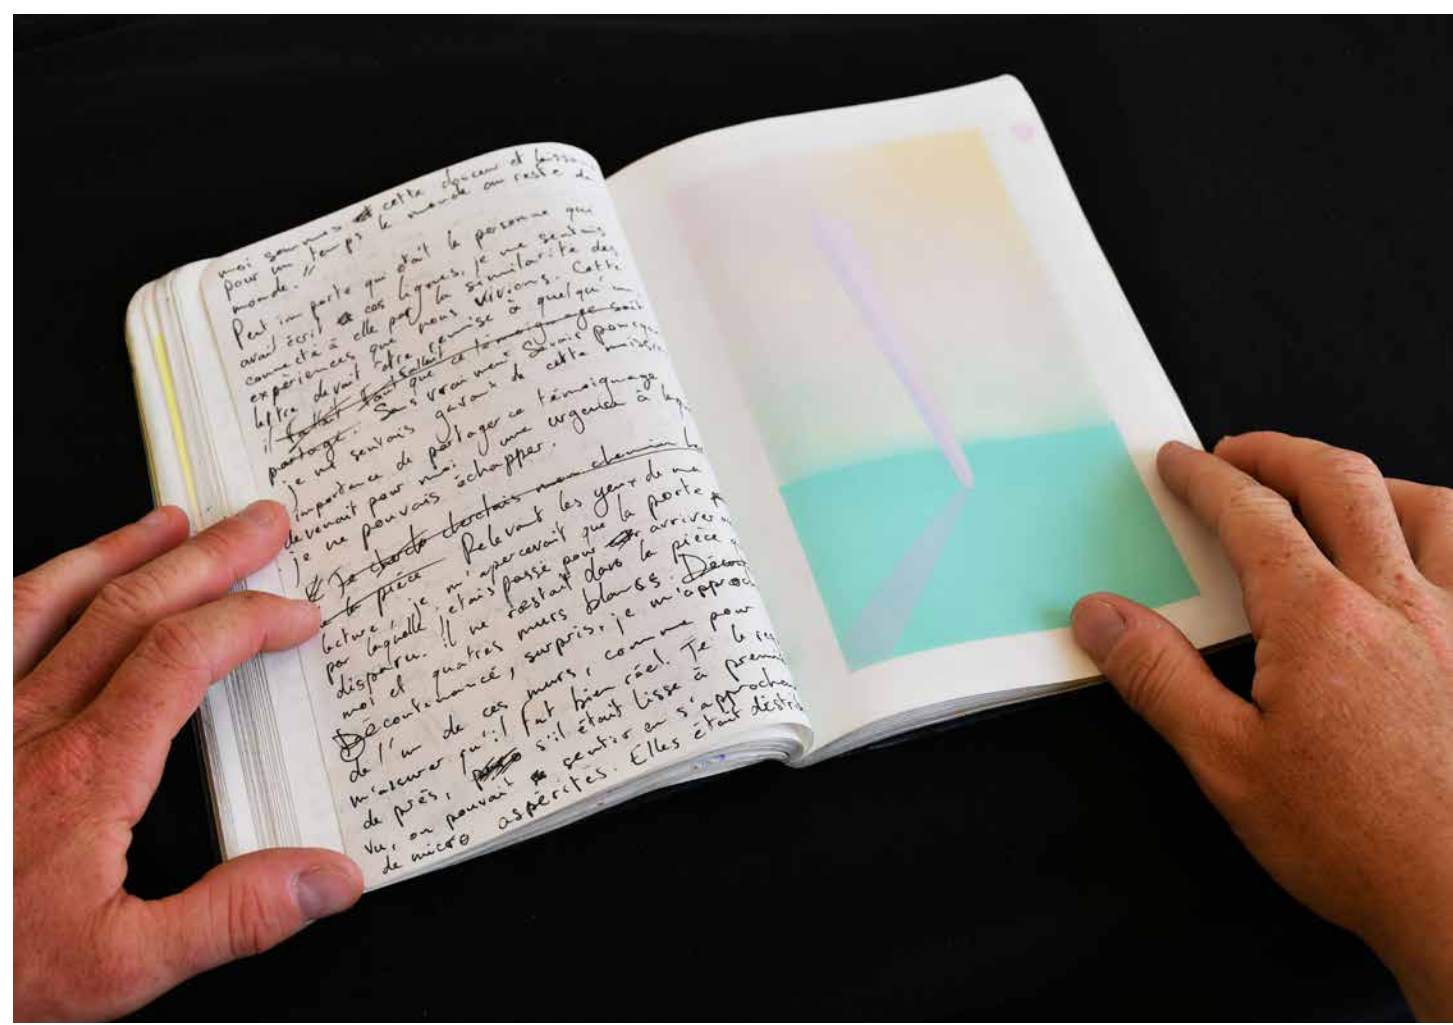 moi sommes cette douceur et laissons
pour un temps le monde au reste du
monde. "
Peut importe qui était la personne qui
avait écrit ces lignes, je me sentais
connecté à elle par la similarité des
expériences que nous vivions. Cette
lettre devait être remise à quelqu'un,
il fallait que ce témoignage soit
partagé. Sans vraiment savoir pourquoi
je me servais de cette
importance de partager ce témoignage
devenait pour moi une urgence à laquelle
je ne pouvais échapper.
Je cherchais mon chemin
la pièce Relevant les yeux de ma
lecture, je m'apercevait que la porte
par laquelle j'étais passé pour arriver
disparu. Il ne restait dans la pièce
moi et quatres murs blancs.
Décontenancé, surpris, je m'approch
de l'un de ces murs, comme pour
m'assurer qu'il fut bien réel. Je le
de près, s'il était lisse à premi
vu, on pouvait sentir en s'approchant
de micro aspérités. Elles étaient distrib